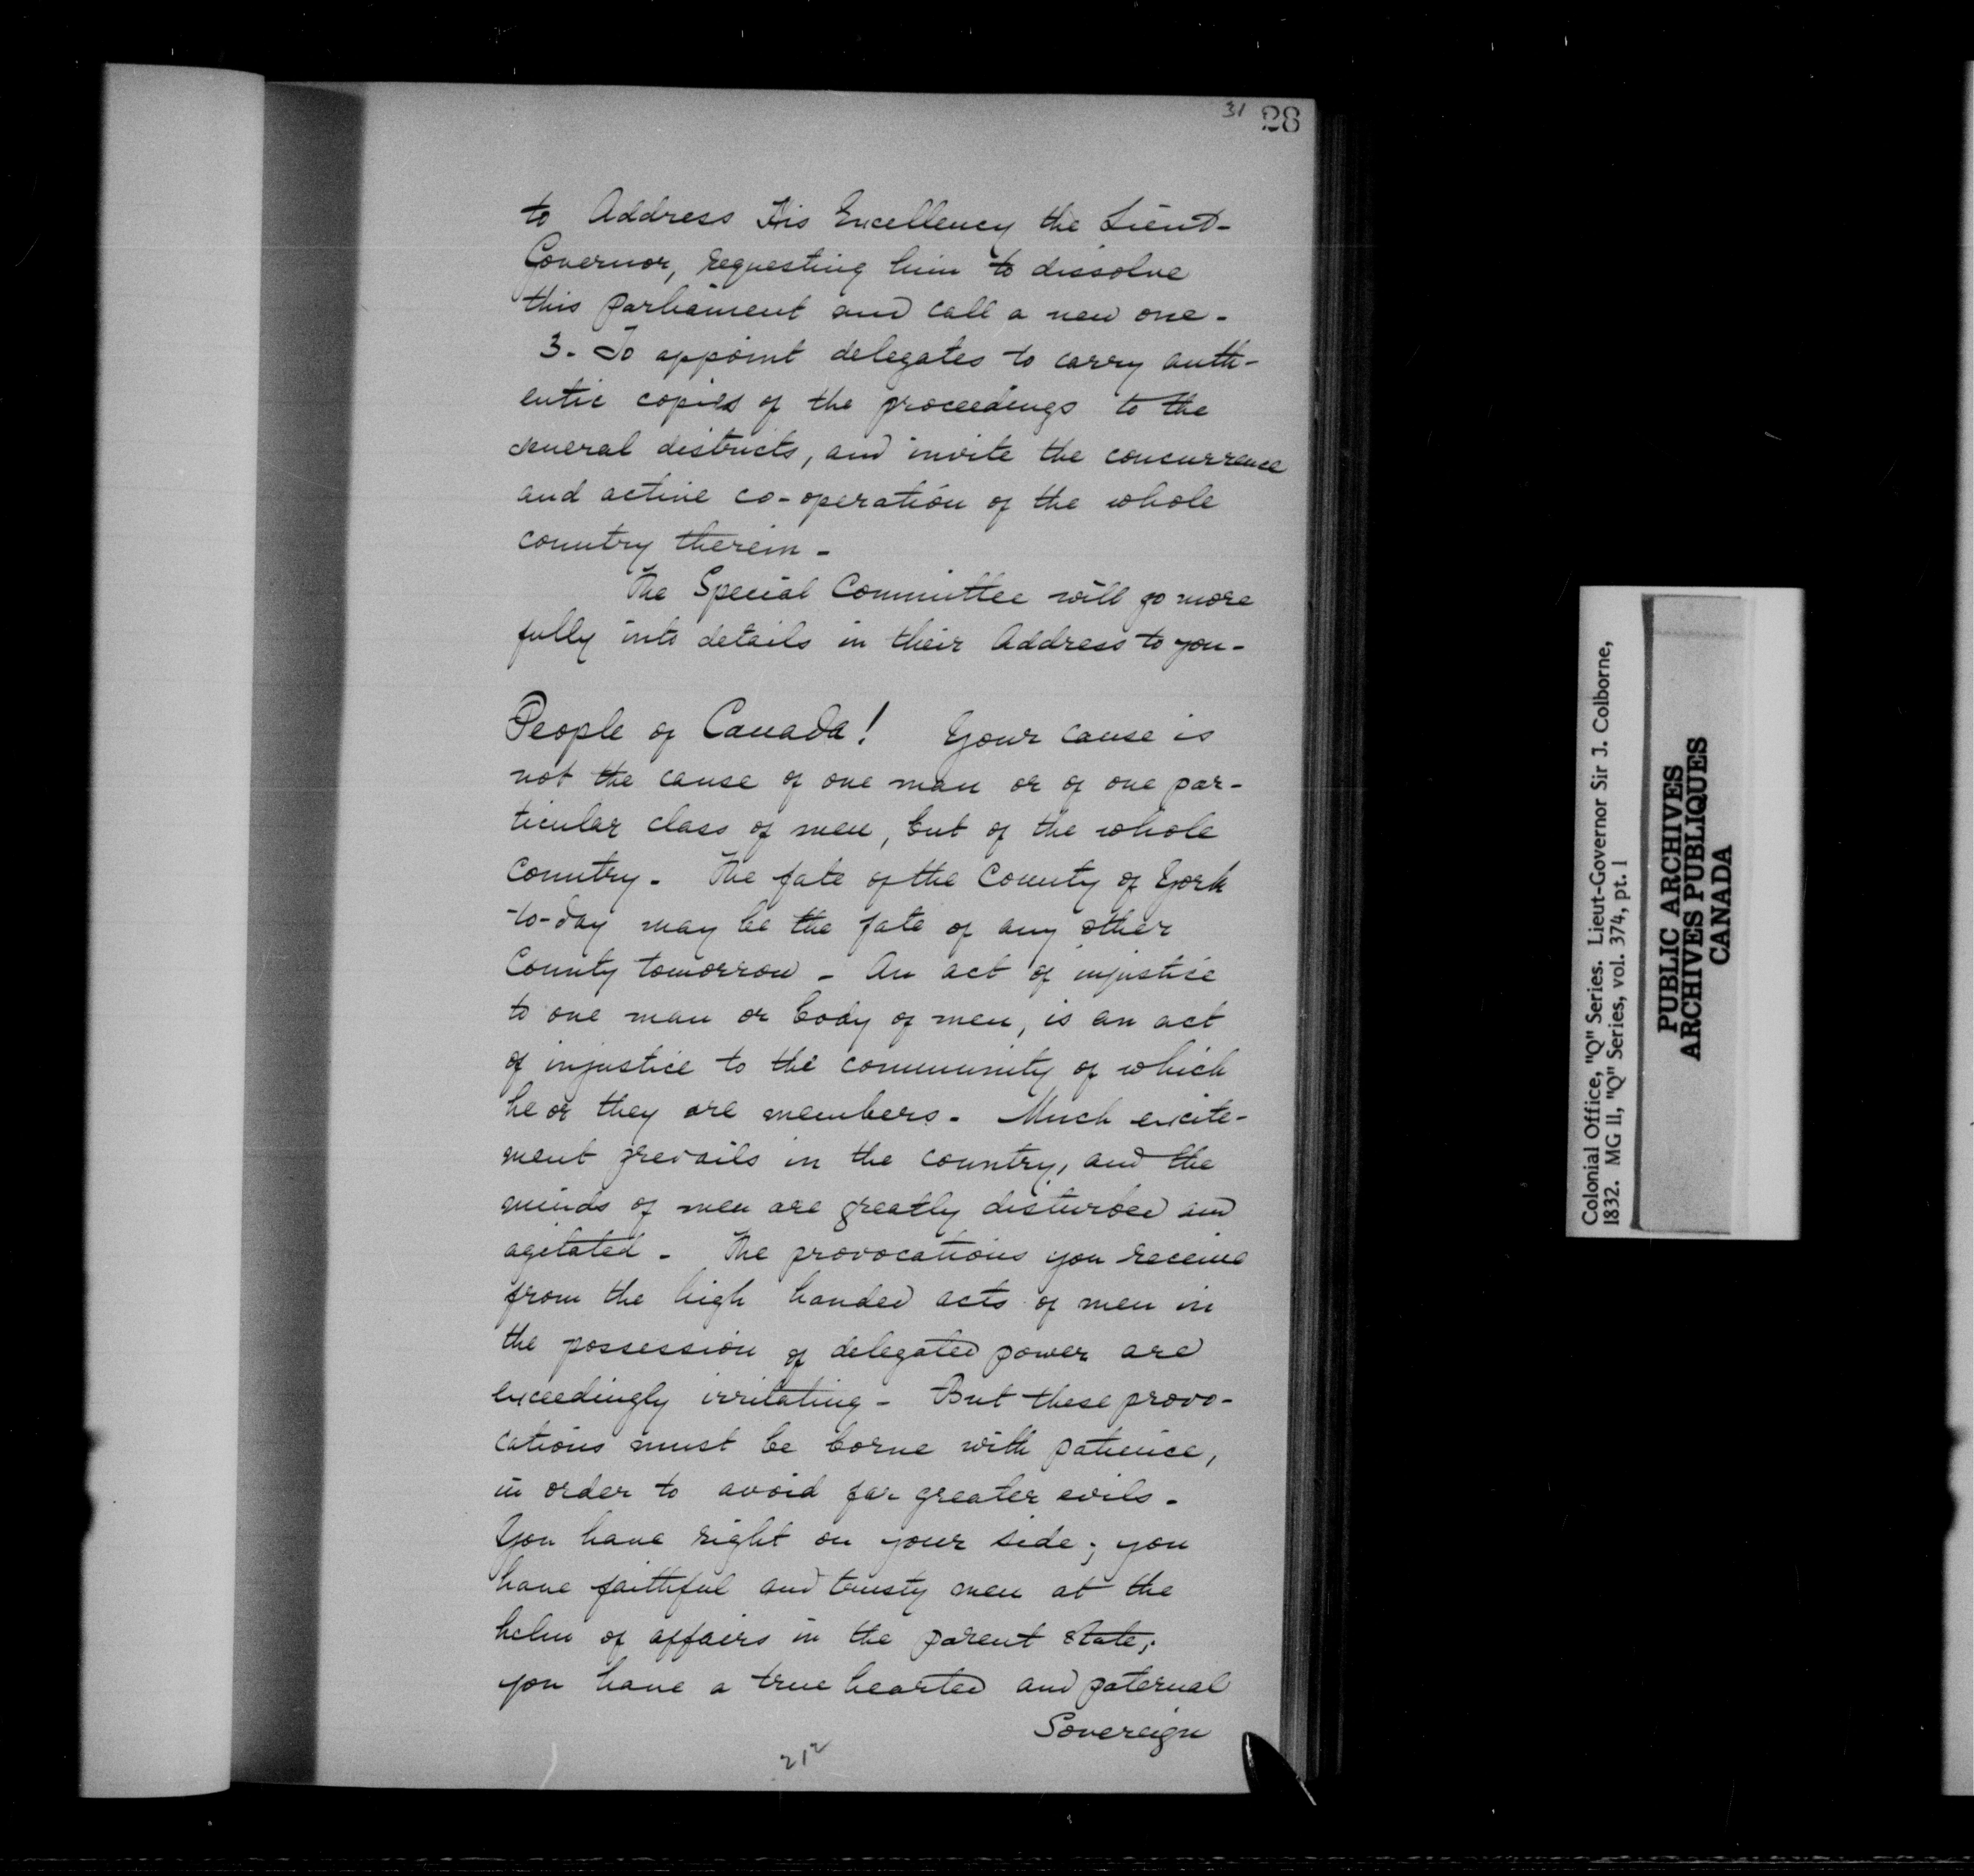 31 28
to Address His Excellency the Lieut-
Governor, requesting him to dissolve
this parliament and call a new one-
3. To appoint delegates to carry auth-
entic copies of the proceedings to the
several districts, and invite the concurrence
and active co-operation of the whole
country therein-
The Special Committee will go more
fully into details in their Address to you-
People of Canada! Your cause is
not the cause of one man or of one par-
ticular class of men, but of the whole
country- The fate of the County of York
to-day may be the fate of any other
County tomorrow- An act of injustice
to one man or body of men, is an act
of injustice to the community of which
he or they are members- Much excite-
ment prevails in the country, and the
minds of men are greatly disturbed and
agitated- The provocations you receive
from the high handed acts of men in
the possession of delegated power are
exceedingly irritating- But these provo-
cations must be borne with patience,
in order to avoid far greater evils-
You have right on your side; you
have faithful and trusty men at the
helm of affairs in the parent state;
you have a true hearted and paternal
Sovereign
212
Colonial Office, "Q" Series. Lieut-Governor Sir J. Colborne,
1832. MG 11, "Q" Series, vol. 374, pt. 1
PUBLIC ARCHIVES
ARCHIVES PUBLIQUES
CANADA